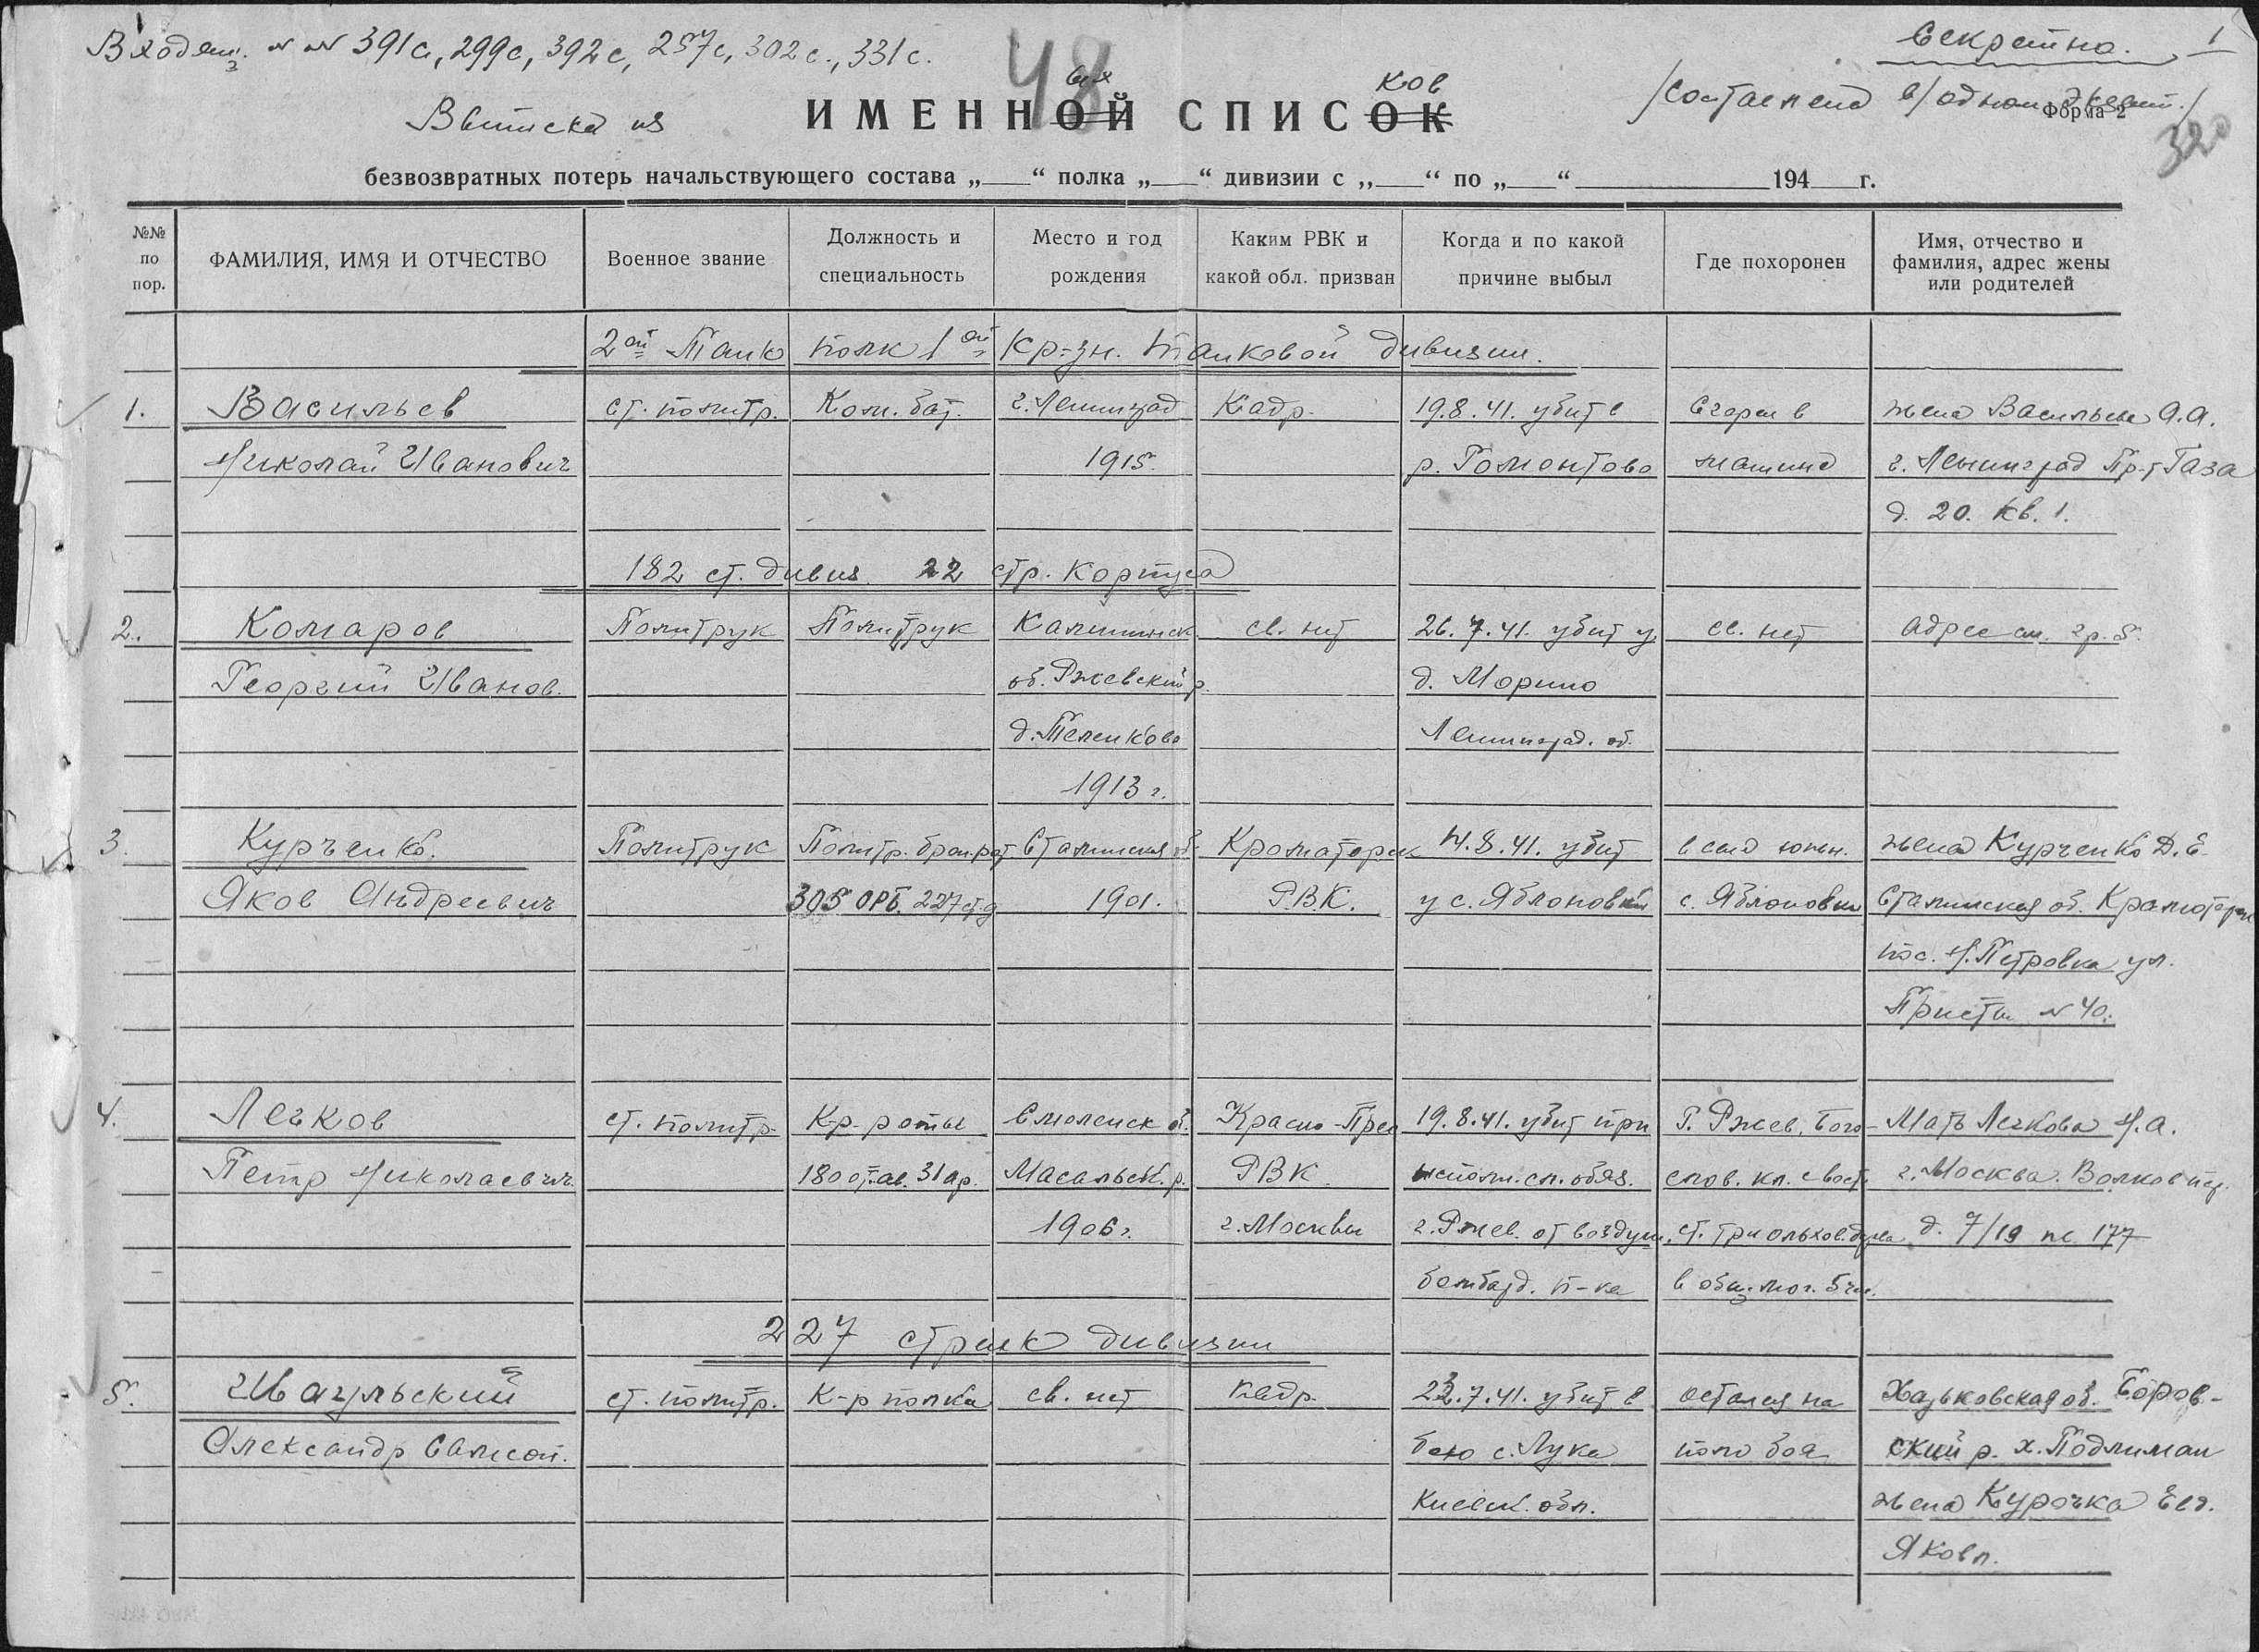 Входящ. №№ 391с, 299с, 392с, 257с, 302с., 331с.
48
Секретно. 1
/составлена в/одном экземп./
Форма 2
320
Выписка из ИМЕННОЙ ых СПИСОК ков
безвозвратных потерь начальствующего состава „___“ полка „___“ дивизии с „___“ по „___“ ______ 194__ г.
№№ по пор.
ФАМИЛИЯ, ИМЯ И ОТЧЕСТВО
Военное звание
Должность и специальность
Место и год рождения
Каким РВК и какой обл. призван
Когда и по какой причине выбыл
Где похоронен
Имя, отчество и фамилия, адрес жены или родителей
2ой Танк полк 1ой Кр-зн. танковой дивизии.
1. Васильев ст. политр. Ком. бат. г. Ленинград Кадр. 19.8.41. убит в Сгорел в жена Васильева А.А.
Николай Иванович 1915. р. Ромонтово машине г. Ленинград Пр-т Газа
д. 20. кв. 1.
182 ст. дивиз. 22 стр. корпуса
2. Комаров Политрук Политрук Калининск. св. нет 26.7.41. убит у св. нет адрес см. гр. 5.
Георгий Иванов. об. Ржевский р. д. Морино
д. Теленково Ленинград. об.
1913 г.
3. Курченко. Политрук Политр. брон. рот Сталинская об. Краматорск 4.8.41. убит жена Курченко Д.Е.
Яков Андреевич 305 ОРБ. 227 ст.д 1901. Р.В.К. у с. Яблоновки с. Яблоновки Сталинская об. Краматорск
пос. Н. Петровка ул.
№ 40.
4. Легков ст. политр. К-р роты Смоленск о. Красно-Прес 19.8.41. убит при г. Ржев. Бого- Мать Легкова Н.А.
Петр Николаевич 180 от. ав. 31 ар. Масальск. р. РВК. исполн. сл. обяз. слов. кл. с вост. г. Москва. Волков пер.
1906 г. г. Москвы г. Ржев. от воздуш. ст. три д. 7/19 кв. 177
бомбард. п-ка в общ. мог. 5 чел.
227 стрелк дивизии
5. Ивагульский ст. политр. К-р полка св. нет кадр. 23.7.41. убит в остался на Харьковская об. Боров-
Александр Самсон. бою с. Лука поле боя ский р. х. Подлиман
Киевск. обл. жена Курочка Евд.
Яковл.